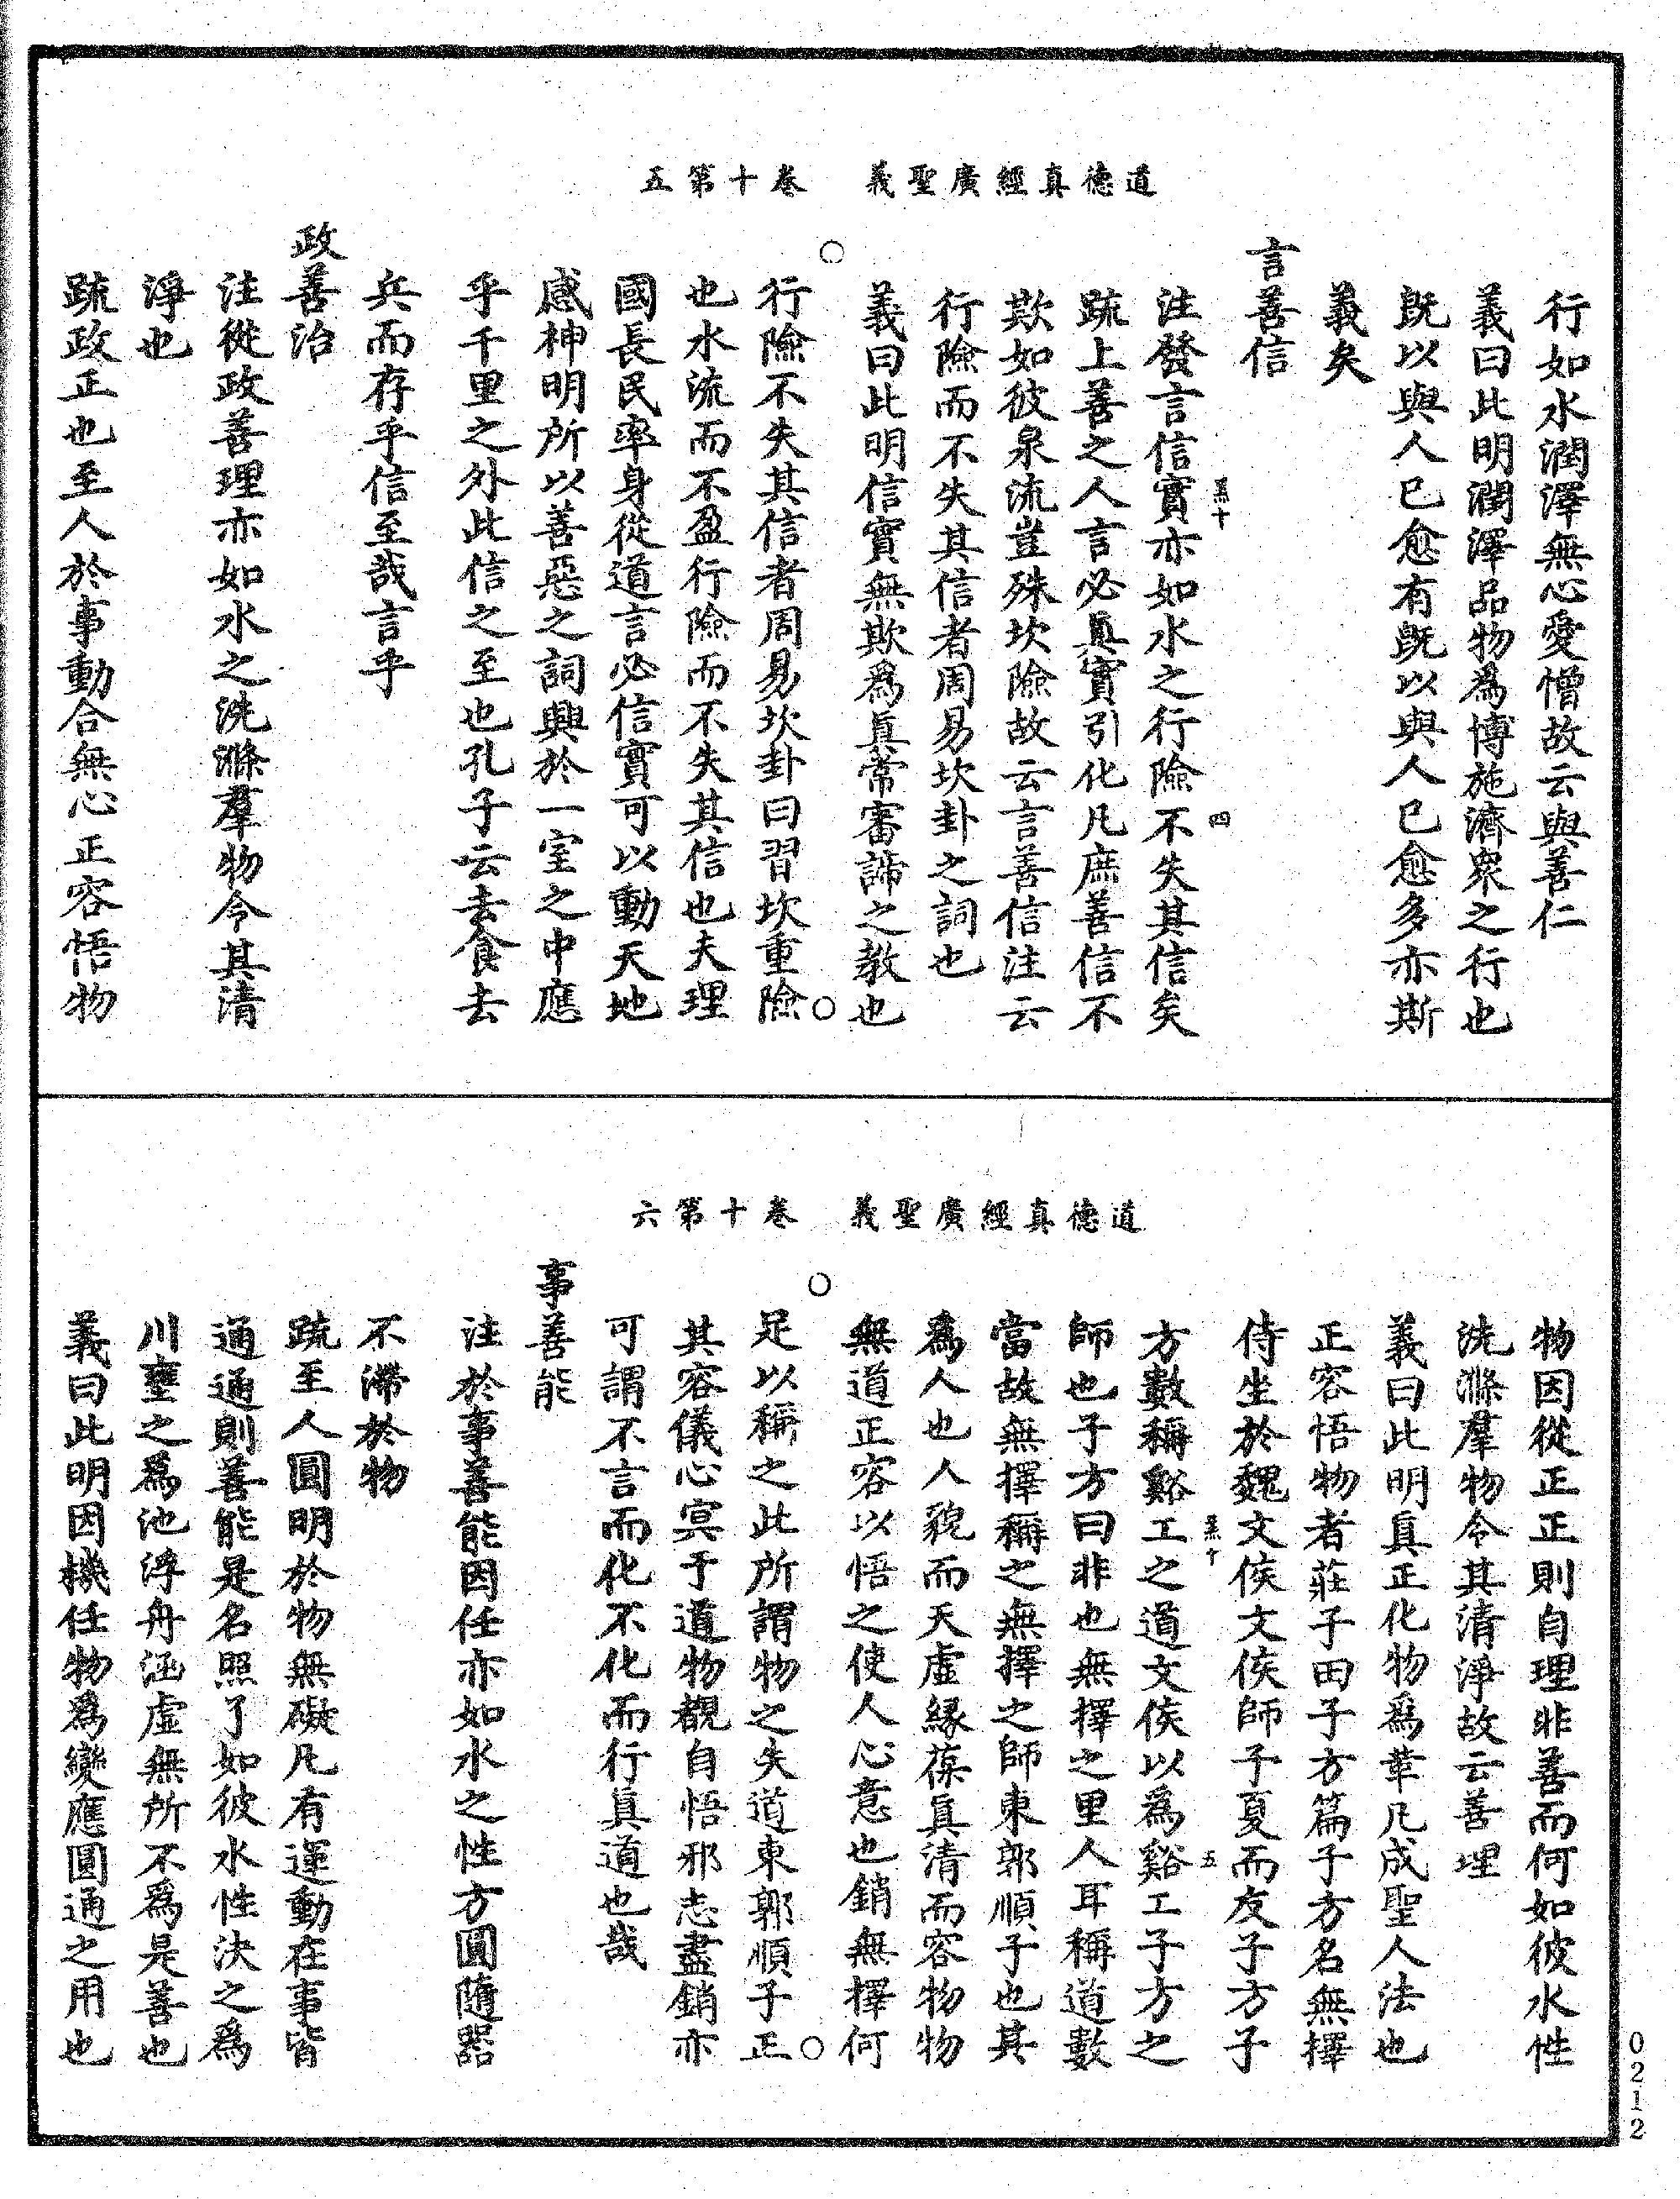 道德真經廣聖義　卷十第五
行如水潤澤無心愛憎故云與善仁
義曰此明潤澤品物爲博施濟衆之行也
旣以與人已愈有旣以與人已愈多亦斯
義矣
言善信
注發言信實亦如水之行險不失其信矣
羔十　四
疏上善之人言必眞實引化凡庶善信不
欺如彼泉流豈殊坎險故云言善信注云
行險而不失其信者周易坎卦之詞也
義曰此明信實無欺爲眞常審諦之教也
行險不失其信者周易坎卦曰習坎重險
也水流而不盈行險而不失其信也夫理
國長民率身從道言必信實可以動天地
感神明所以善惡之詞興於一室之中應
乎千里之外此信之至也孔子云去食去
兵而存乎信至哉言乎
政善治
注從政善理亦如水之洗滌羣物令其清
淨也
疏政正也至人於事動合無心正容悟物
道德真經廣聖義　卷十第六
物因從正正則自理非善而何如彼水性
洗滌羣物令其清淨故云善理
義曰此明眞正化物爲革凡成聖人法也
正容悟物者莊子田子方篇子方名無擇
侍坐於魏文侯文侯師子夏而友子方子
方數稱谿工之道文侯以爲谿工子方之
羔十　五
師也子方曰非也無擇之里人耳稱道數
當故無擇稱之無擇之師東郭順子也其
爲人也人貌而天虛緣葆眞清而容物物
無道正容以悟之使人心意也銷無擇何
足以稱之此所謂物之失道東郭順子正
其容儀心冥于道物覩自悟邪志盡銷亦
可謂不言而化不化而行眞道也哉
事善能
注於事善能因任亦如水之性方圓隨器
不滯於物
疏至人圓明於物無礙凡有運動在事皆
通通則善能是名照了如彼水性決之爲
川壅之爲池浮舟涵虛無所不爲是善也
義曰此明因機任物爲變應圓通之用也
0212